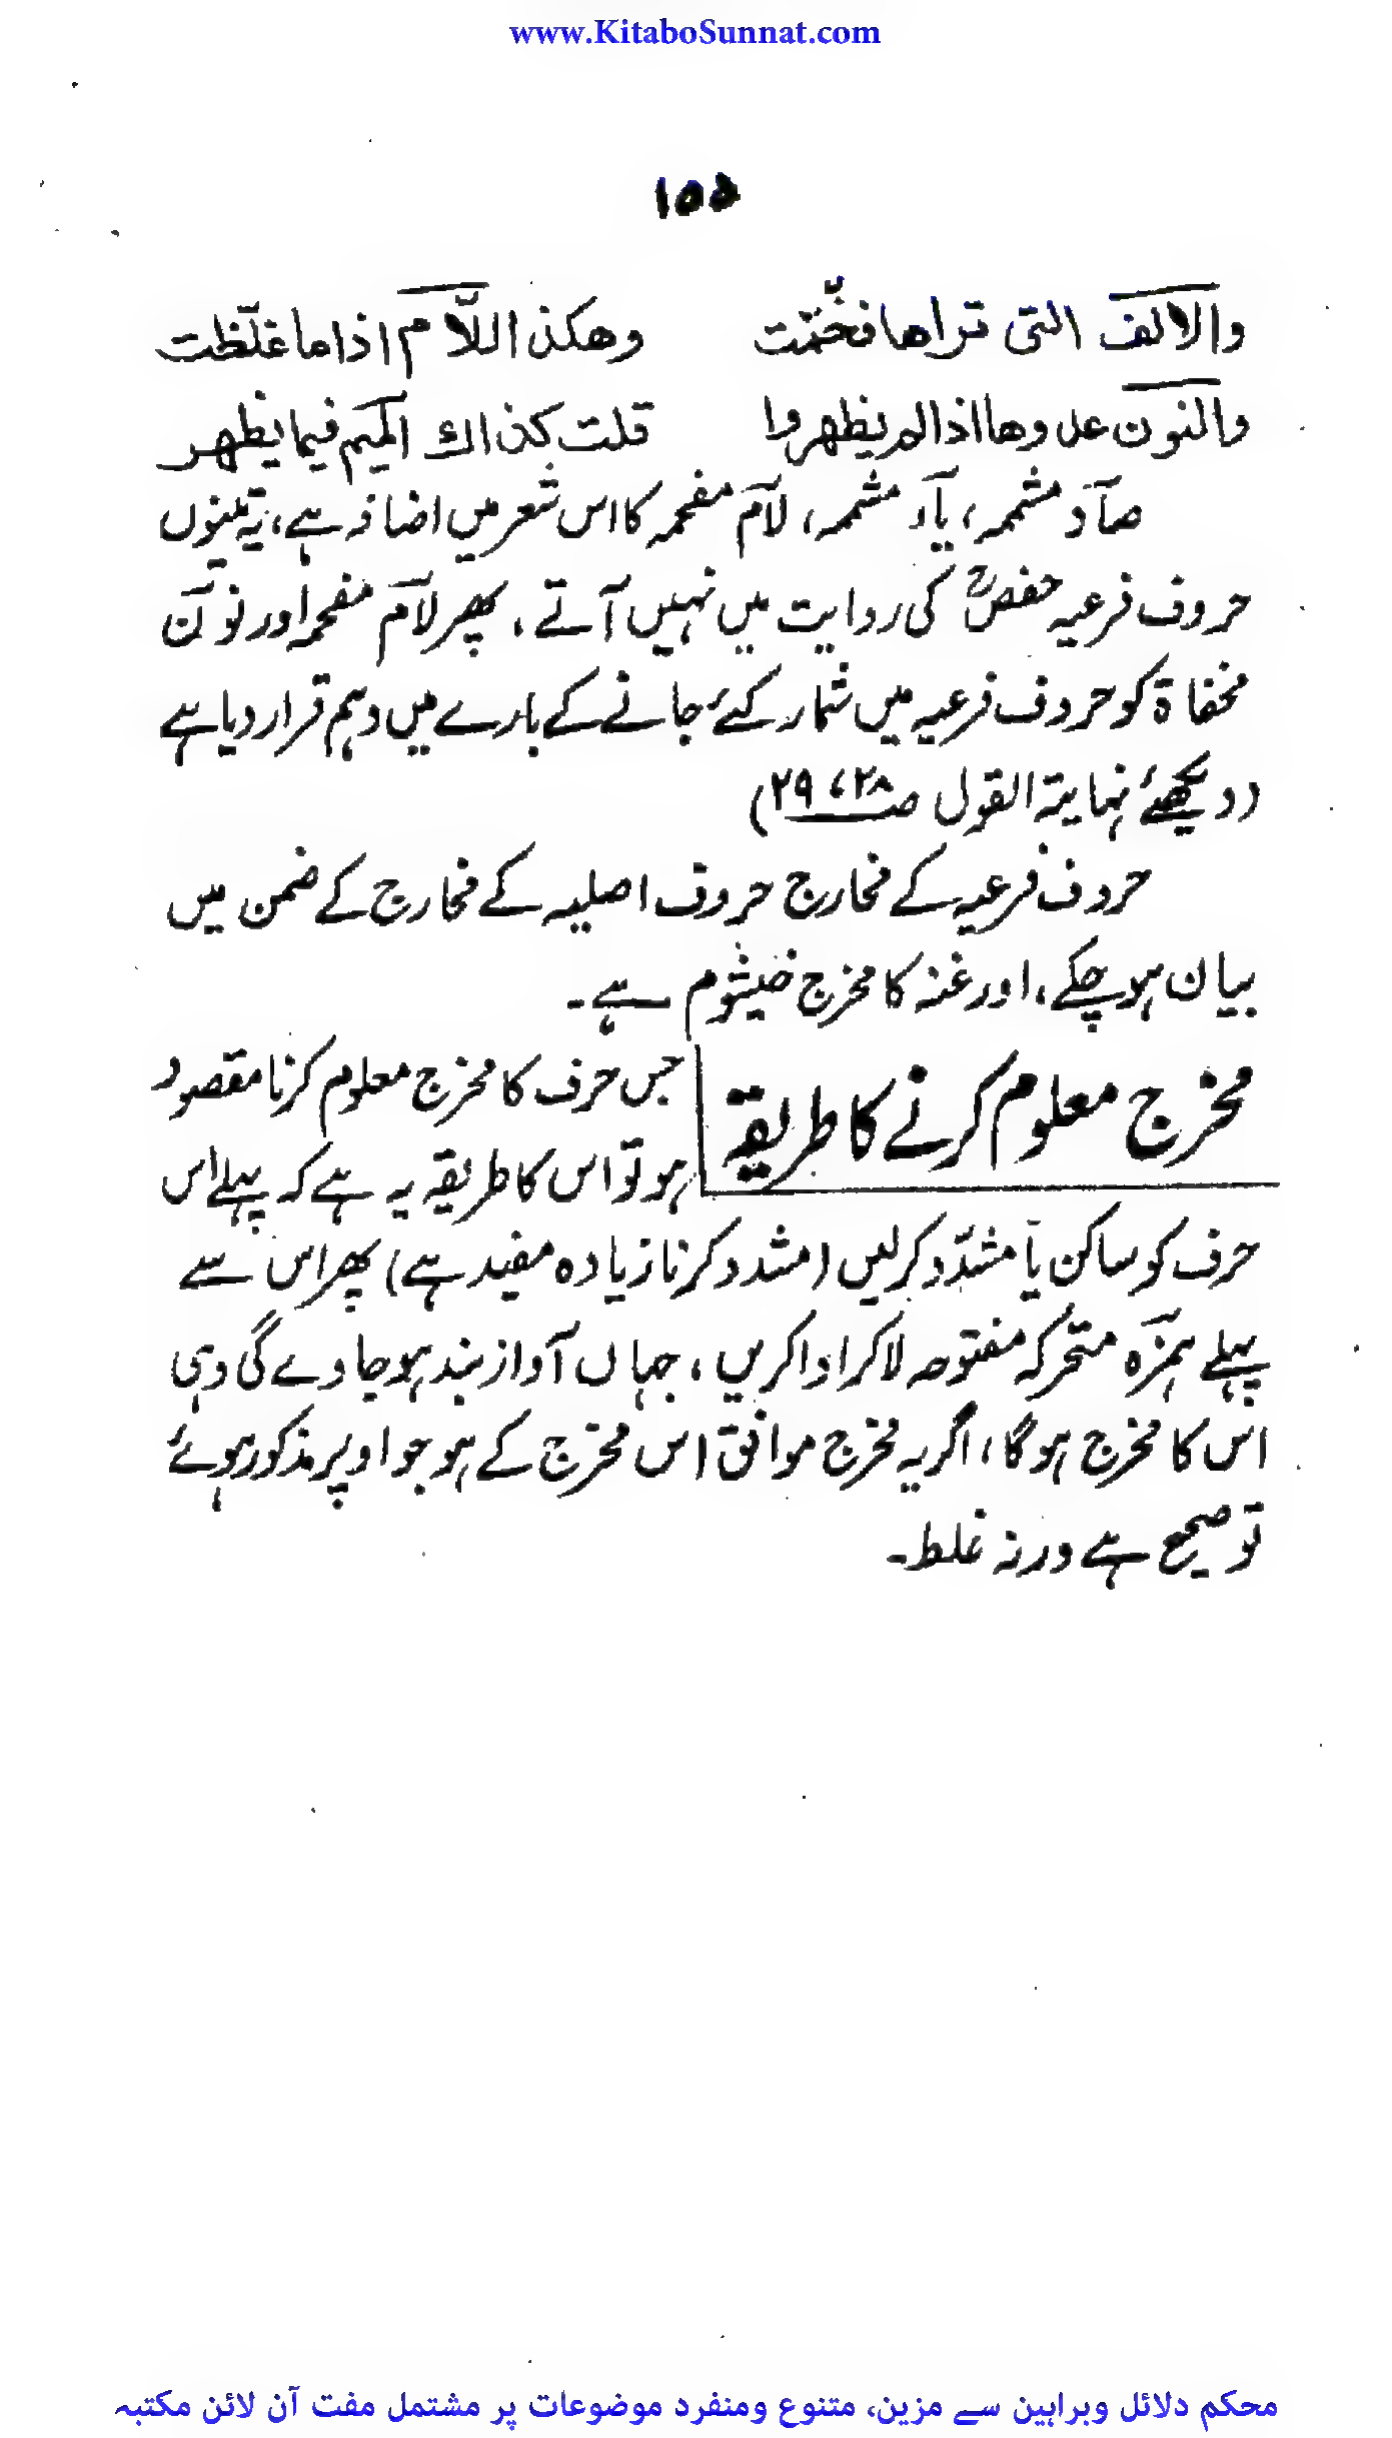 www.KitaboSunnat.com
۱۵۵
والالف التی تراها فخّمت وهکذا اللّام اذا ما غلّظت
والنون عدوها اذا لم یظهروا قلت کذاك المیم فیما یظهر
صآد مشمہ، یآء مشمہ، لآم مفخمہ کا اس شعر میں اضافہ ہے، یہ تینوں
حروف فرعیہ حفصؒ کی روایت میں نہیں آتے، پھر لآم مفخمہ اور نوآن
مخفاۃ کو حروف فرعیہ میں شمار کئے جانے کے بارے میں وہم قرار دیا ہے
(دیکھئے نہایۃ القول صـ ۲۸، ۲۹)
حروف فرعیہ کے مخارج حروف اصلیہ کے مخارج کے ضمن میں
بیان ہو چکے، اور غنہ کا مخرج خیشوم ہے۔
مخرج معلوم کرنے کا طریقہ
جس حرف کا مخرج معلوم کرنا مقصود
ہو تو اس کا طریقہ یہ ہے کہ پہلے اس
حرف کو ساکن یا مشدّد کرلیں (مشدد کرنا زیادہ مفید ہے) پھر اس سے
پہلے ہمزہ متحرکہ مفتوحہ لاکر ادا کریں، جہاں آواز بند ہو جاوے گی وہی
اس کا مخرج ہوگا، اگر یہ مخرج موافق اس مخرج کے ہو جو اوپر مذکور ہوئے
تو صحیح ہے ورنہ غلط۔
محکم دلائل وبراہین سے مزین، متنوع ومنفرد موضوعات پر مشتمل مفت آن لائن مکتبہ